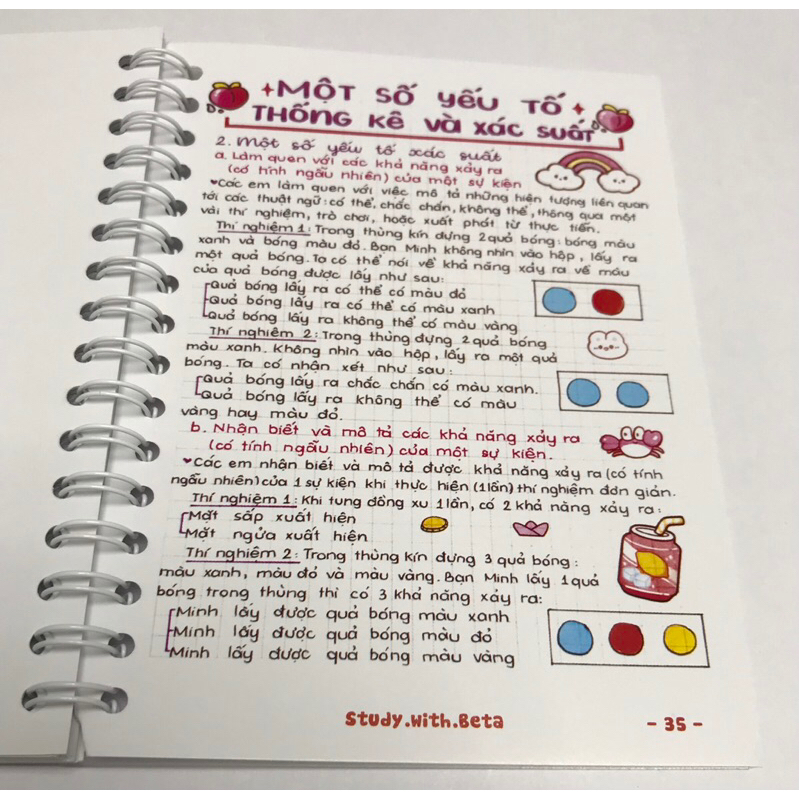 MỘT SỐ YẾU TỐ
THỐNG KÊ VÀ XÁC SUẤT
2. Một số yếu tố xác suất
a. Làm quen với các khả năng xảy ra
(có tính ngẫu nhiên) của một sự kiện
Các em làm quen với việc mô tả những hiện tượng liên quan
tới các thuật ngữ: có thể, chắc chắn, không thể, thông qua một
vài thí nghiệm, trò chơi, hoặc xuất phát từ thực tiễn.
Thí nghiệm 1: Trong thùng kín đựng 2 quả bóng: bóng màu
xanh và bóng màu đỏ. Bạn Minh không nhìn vào hộp, lấy ra
một quả bóng. Ta có thể nói về khả năng xảy ra về màu
của quả bóng được lấy như sau:
Quả bóng lấy ra có thể có màu đỏ
Quả bóng lấy ra có thể có màu xanh
Quả bóng lấy ra không thể có màu vàng
Thí nghiệm 2: Trong thùng đựng 2 quả bóng
màu xanh. Không nhìn vào hộp, lấy ra một quả
bóng. Ta có nhận xét như sau:
Quả bóng lấy ra chắc chắn có màu xanh.
Quả bóng lấy ra không thể có màu
vàng hay màu đỏ.
b. Nhận biết và mô tả các khả năng xảy ra
(có tính ngẫu nhiên) của một sự kiện.
Các em nhận biết và mô tả được khả năng xảy ra (có tính
ngẫu nhiên) của 1 sự kiện khi thực hiện (1 lần) thí nghiệm đơn giản.
Thí nghiệm 1: Khi tung đồng xu 1 lần, có 2 khả năng xảy ra:
Mặt sấp xuất hiện
Mặt ngửa xuất hiện
Thí nghiệm 2: Trong thùng kín đựng 3 quả bóng:
màu xanh, màu đỏ và màu vàng. Bạn Minh lấy 1 quả
bóng trong thùng thì có 3 khả năng xảy ra:
Minh lấy được quả bóng màu xanh
Minh lấy được quả bóng màu đỏ
Minh lấy được quả bóng màu vàng
Study.With.Beta
- 35 -